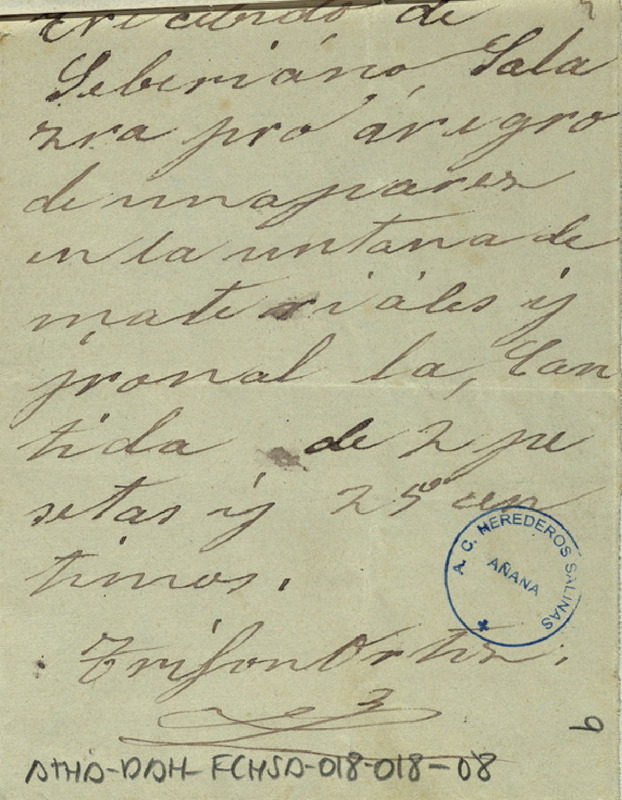 ericibido de
Seberiáno, Sala
zra pro áregro
de una pares
en la untana de
materiáles y
jronal la, Can
tida de 2 pe
setas y 25 cen
timos.
Trifon Ortiz.
A. C. HEREDEROS SALINAS
AÑANA
9
ATHA-DAH-FCHSA-018-018-08